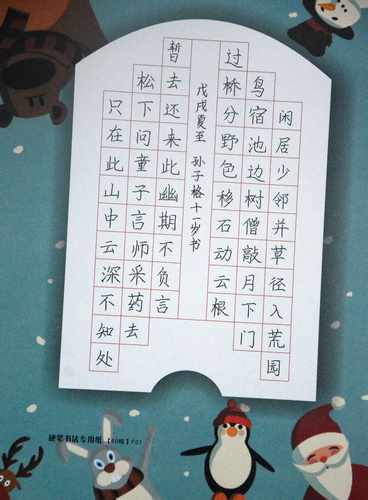 闲居少邻并草径入荒园
鸟宿池边树僧敲月下门
过桥分野色移石动云根
戊戌夏至 孙子格十一岁书
暂去还来此幽期不负言
松下问童子言师采药去
只在此山中云深不知处
硬笔书法专用纸【60格】F01